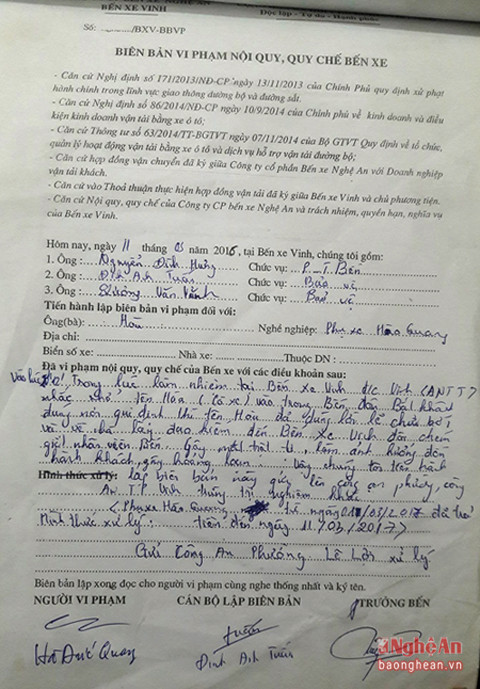 BẾN XE VINH
Độc lập - Tự do - Hạnh phúc
Số: ........../BXV-BBVP
BIÊN BẢN VI PHẠM NỘI QUY, QUY CHẾ BẾN XE
- Căn cứ Nghị định số 171/2013/NĐ-CP ngày 13/11/2013 của Chính Phủ quy định xử phạt
hành chính trong lĩnh vực giao thông đường bộ và đường sắt.
- Căn cứ Nghị định số 86/2014/NĐ-CP ngày 10/9/2014 của Chính phủ về kinh doanh và điều
kiện kinh doanh vận tải bằng xe ô tô;
- Căn cứ Thông tư số 63/2014/TT-BGTVT ngày 07/11/2014 của Bộ GTVT Quy định về tổ chức,
quản lý hoạt động vận tải bằng xe ô tô và dịch vụ hỗ trợ vận tải đường bộ;
- Căn cứ hợp đồng vận chuyển đã ký giữa Công ty cổ phần Bến xe Nghệ An với Doanh nghiệp
vận tải khách.
- Căn cứ vào Thoả thuận thực hiện hợp đồng vận tải đã ký giữa Bến xe Vinh và chủ phương tiện.
- Căn cứ Nội quy, quy chế của Công ty CP bến xe Nghệ An và trách nhiệm, quyền hạn, nghĩa vụ
của Bến xe Vinh.
Hôm nay, ngày 11 tháng 03 năm 2016, tại Bến xe Vinh, chúng tôi gồm:
1. Ông : Nguyễn Đình Hưng Chức vụ : P. T. Bến
2. Ông : Đinh Anh Tuấn Chức vụ : Bảo vệ
3. Ông : Văn Chức vụ : Bảo vệ
Tiến hành lập biên bản vi phạm đối với:
Ông(bà): Hòa Nghề nghiệp: Phụ xe Hào Quang
Địa chỉ:
Biển số xe: Nhà xe: Thuộc DN :
Đã vi phạm nội quy, quy chế của Bến xe với các điều khoản sau:
Trong lúc làm nhiệm tại Bến Xe Vinh Đ/c Vinh (ANTT)
nhắc nhở tên Hòa (Lơ xe) vào trong Bến đón Bắt khách
đúng nơi qui định thì tên Hòa đã dùng lời lẽ chửa bới
và về nhà lấy dao kiếm đến Bến Xe Vinh đòi chém
giết nhân viên Bến. Gây mất trật tự, làm ảnh hưởng đến
hành khách, gây hoang mang. Vậy chúng tôi tiến hành
Hình thức xử lý: lập biên bản này gửi lên công an phường, công
An TP Vinh
(Phụ xe Hào Quang ngày 01/03/2017 đã
Hình thức xử lý: đến ngày 11/03/2017)
Gửi Công An Phường Lê Lợi xử lý
Biên bản lập xong đọc cho người vi phạm cùng nghe thống nhất và ký tên.
NGƯỜI VI PHẠM CÁN BỘ LẬP BIÊN BẢN TRƯỞNG BẾN
Đinh Anh Tuấn
Nghệ An
baonghean.vn